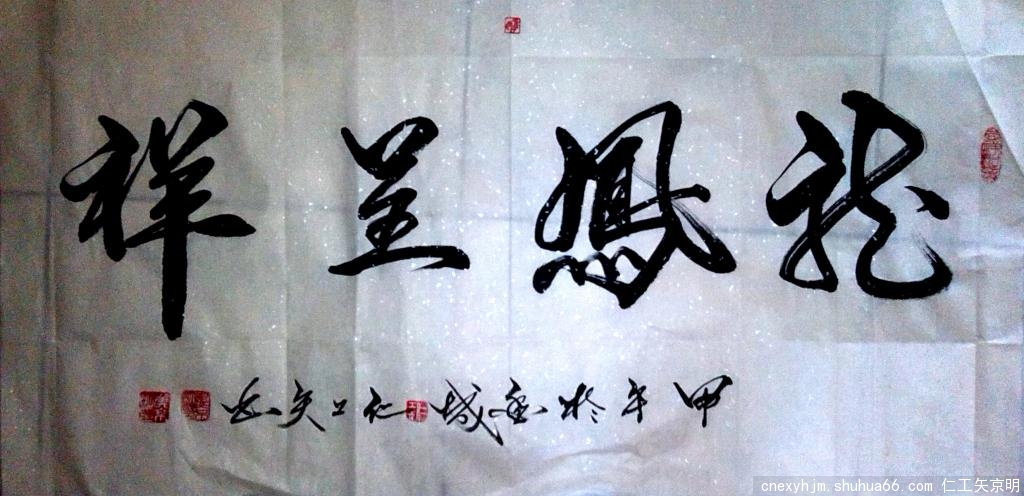 龍鳳呈祥
甲午於城仁工矢
cnexyhjm.shuhua66.com 仁工矢京明